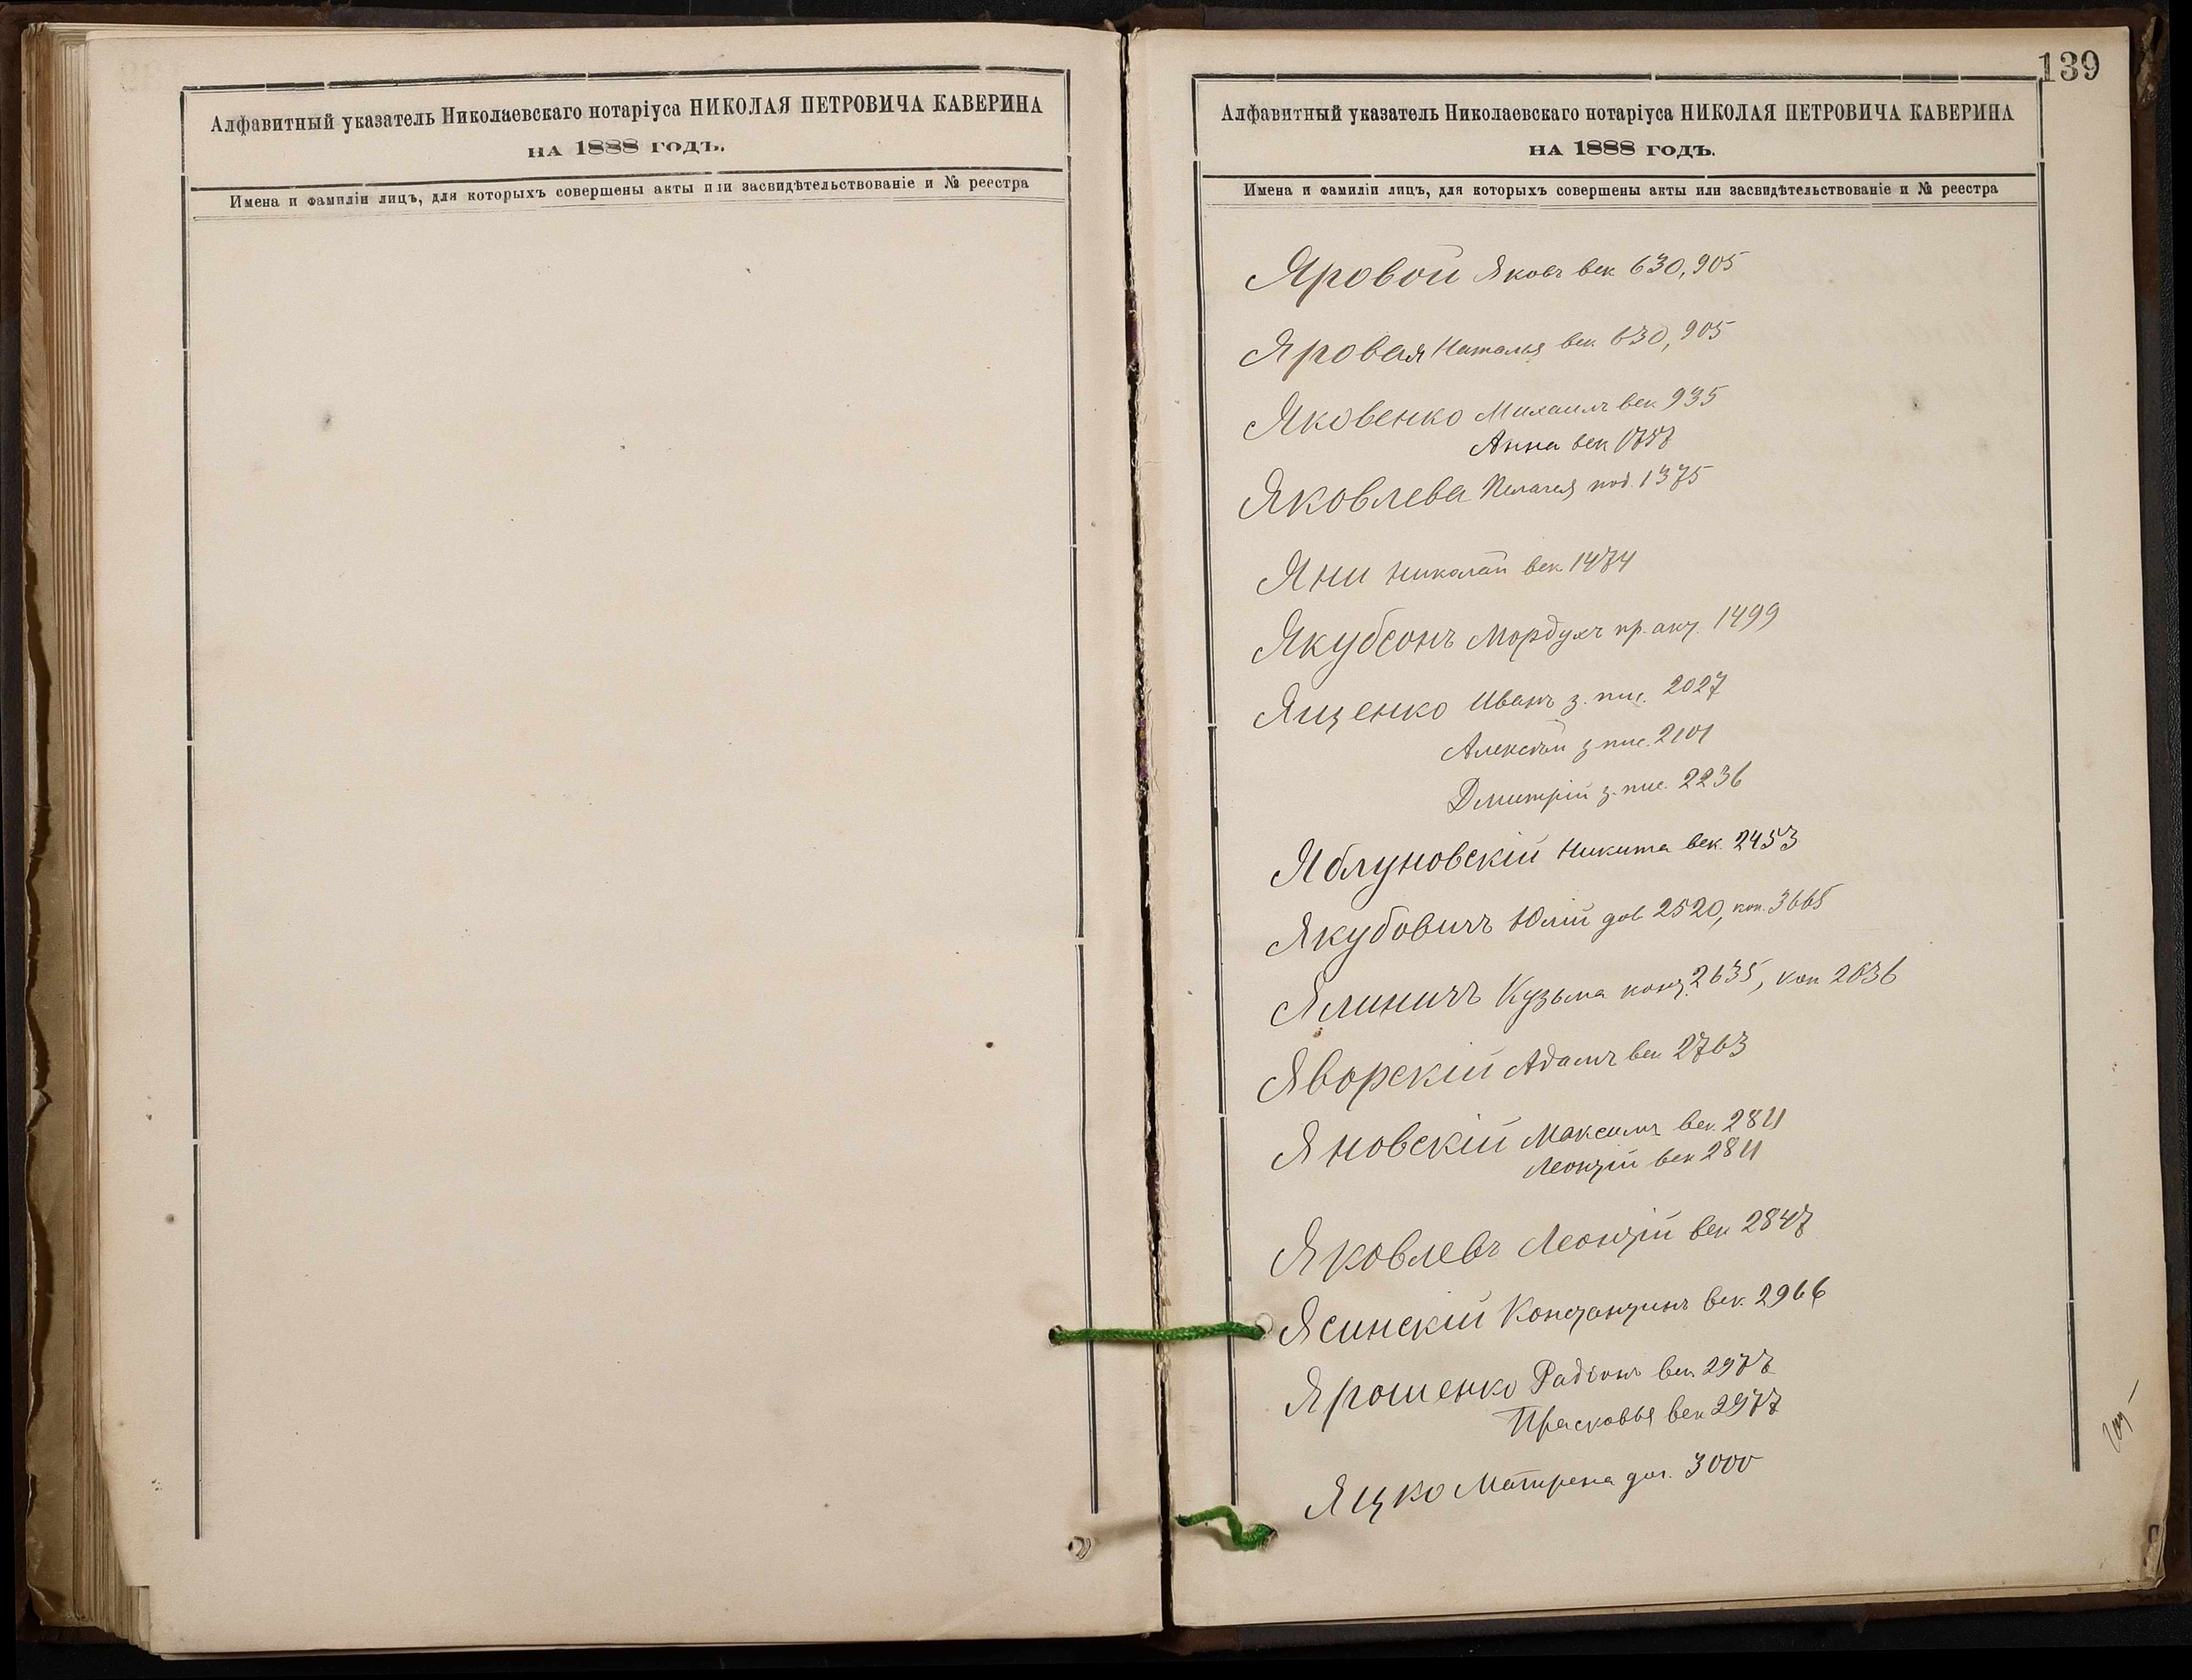 Алфавитный указатель Николаевскаго нотаріуса НИКОЛАЯ ПЕТРОВИЧА КАВЕРИНА
НА 1888 ГОДЪ.
Имена и фамиліи лицъ, для которыхъ совершены акты или засвидѣтельствованіе и № реестра
139
Алфавитный указатель Николаевскаго нотаріуса НИКОЛАЯ ПЕТРОВИЧА КАВЕРИНА
НА 1888 ГОДЪ.
Имена и фамиліи лицъ, для которыхъ совершены акты или засвидѣтельствованіе и № реестра
Яровой Яковъ век 630, 905
Яровая Наталья век 630, 905
Яковенко Михаилъ век 935
Анна век
Яковлева Пелагея под. 1375
Яни Николай век 1474
Якубсонъ Мордухъ пр. акц. 1499
Ященко Иванъ з. пис. 2027
Алексѣй з пис. 2101
Дмитрій з. пис. 2236
Яблуновскій Никита век. 2453
Якубовичъ Юлій дов 2520, коп. 3665
Ялиничъ Кузьма 2635, коп 2636
Яворскій Адамъ век 2763
Яновскій Максимъ век. 2811
Леонтій век 2811
Яковлевъ Леонтій век 2847
Ясинскій Константинъ век. 2966
Ярошенко Радіонъ век 2977
Прасковья век 2977
Яцко Матрена дог. 3000